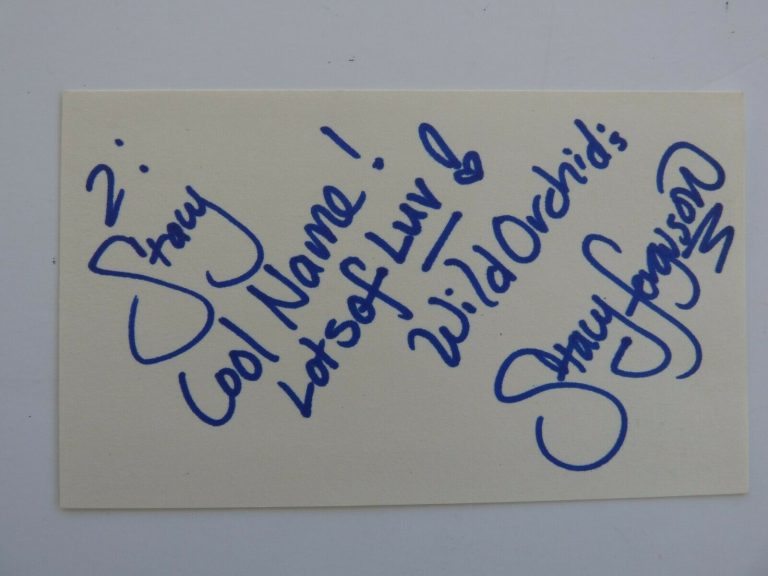 2:
Stacy
Cool Name!
Lots of Luv!
Wild Orchid's
Stacy Ferguson